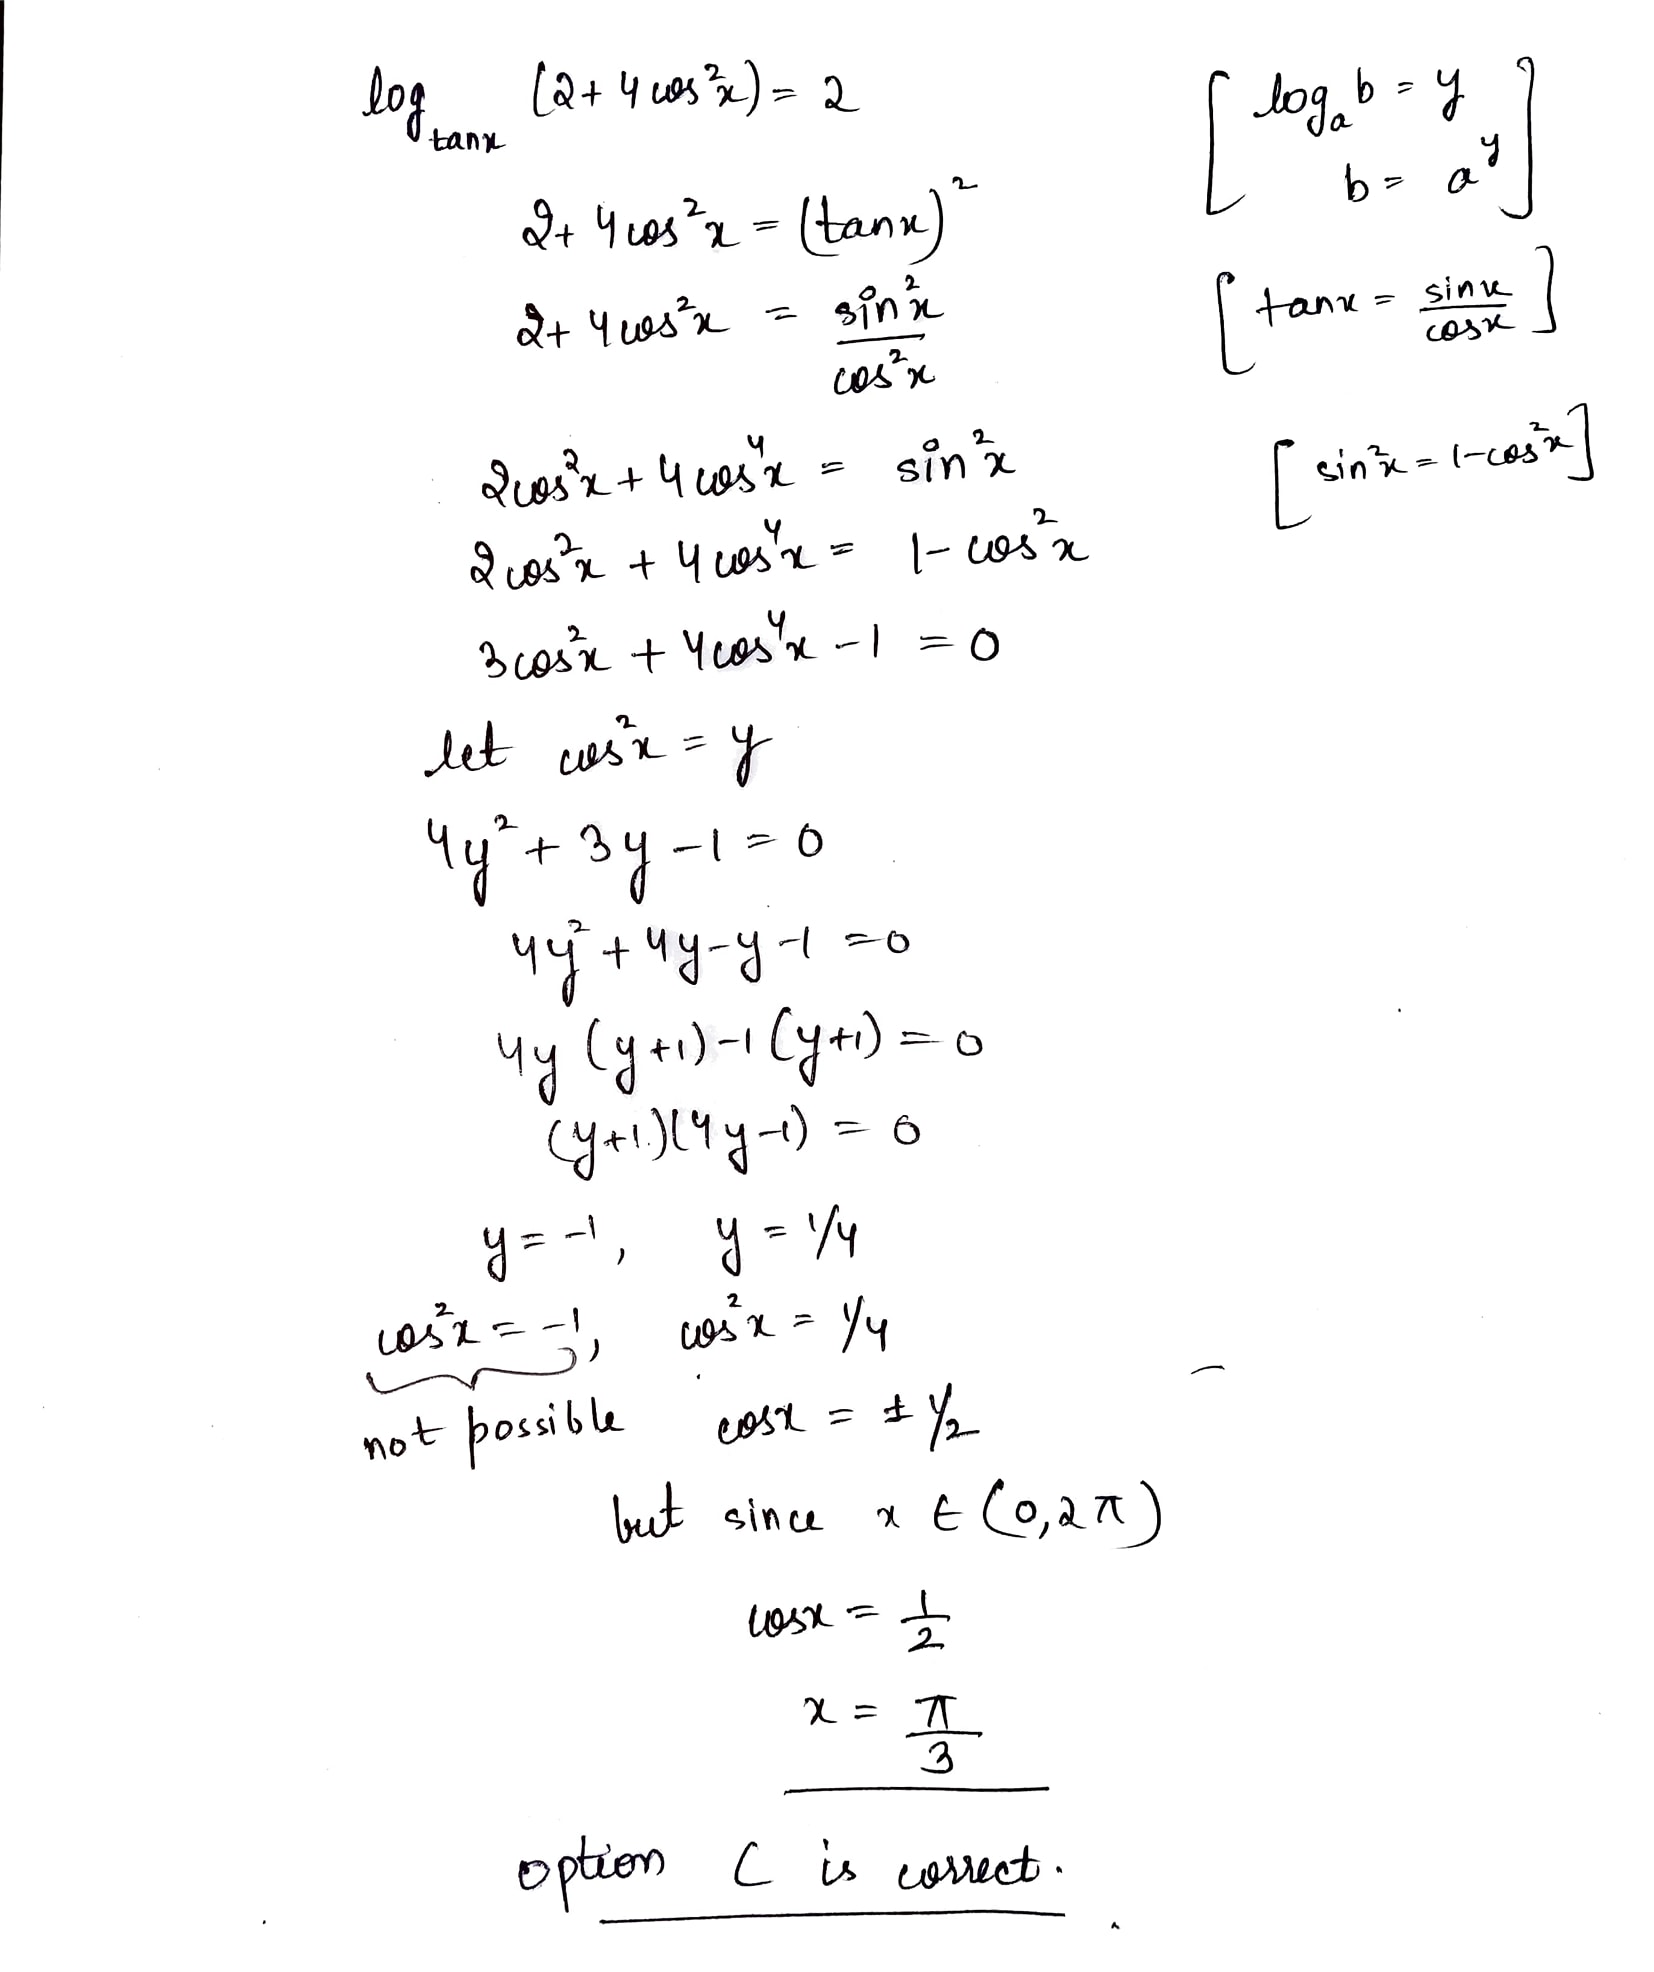 log_tanx (2+4cos²x) = 2
[log_a b = y
b = a^y]
2+4cos²x = (tanx)²
2+4cos²x = sin²x/cos²x
[tanx = sinx/cosx]
2cos²x + 4cos⁴x = sin²x
[sin²x = 1-cos²x]
2cos²x + 4cos⁴x = 1-cos²x
3cos²x + 4cos⁴x -1 = 0
let cos²x = y
4y² + 3y -1 = 0
4y² + 4y-y-1 = 0
4y(y+1)-1(y+1) = 0
(y+1)(4y-1) = 0
y = -1, y = 1/4
cos²x = -1, cos²x = 1/4
not possible cosx = ± 1/2
but since x ∈ (0,2π)
cosx = 1/2
x = π/3
option C is correct.